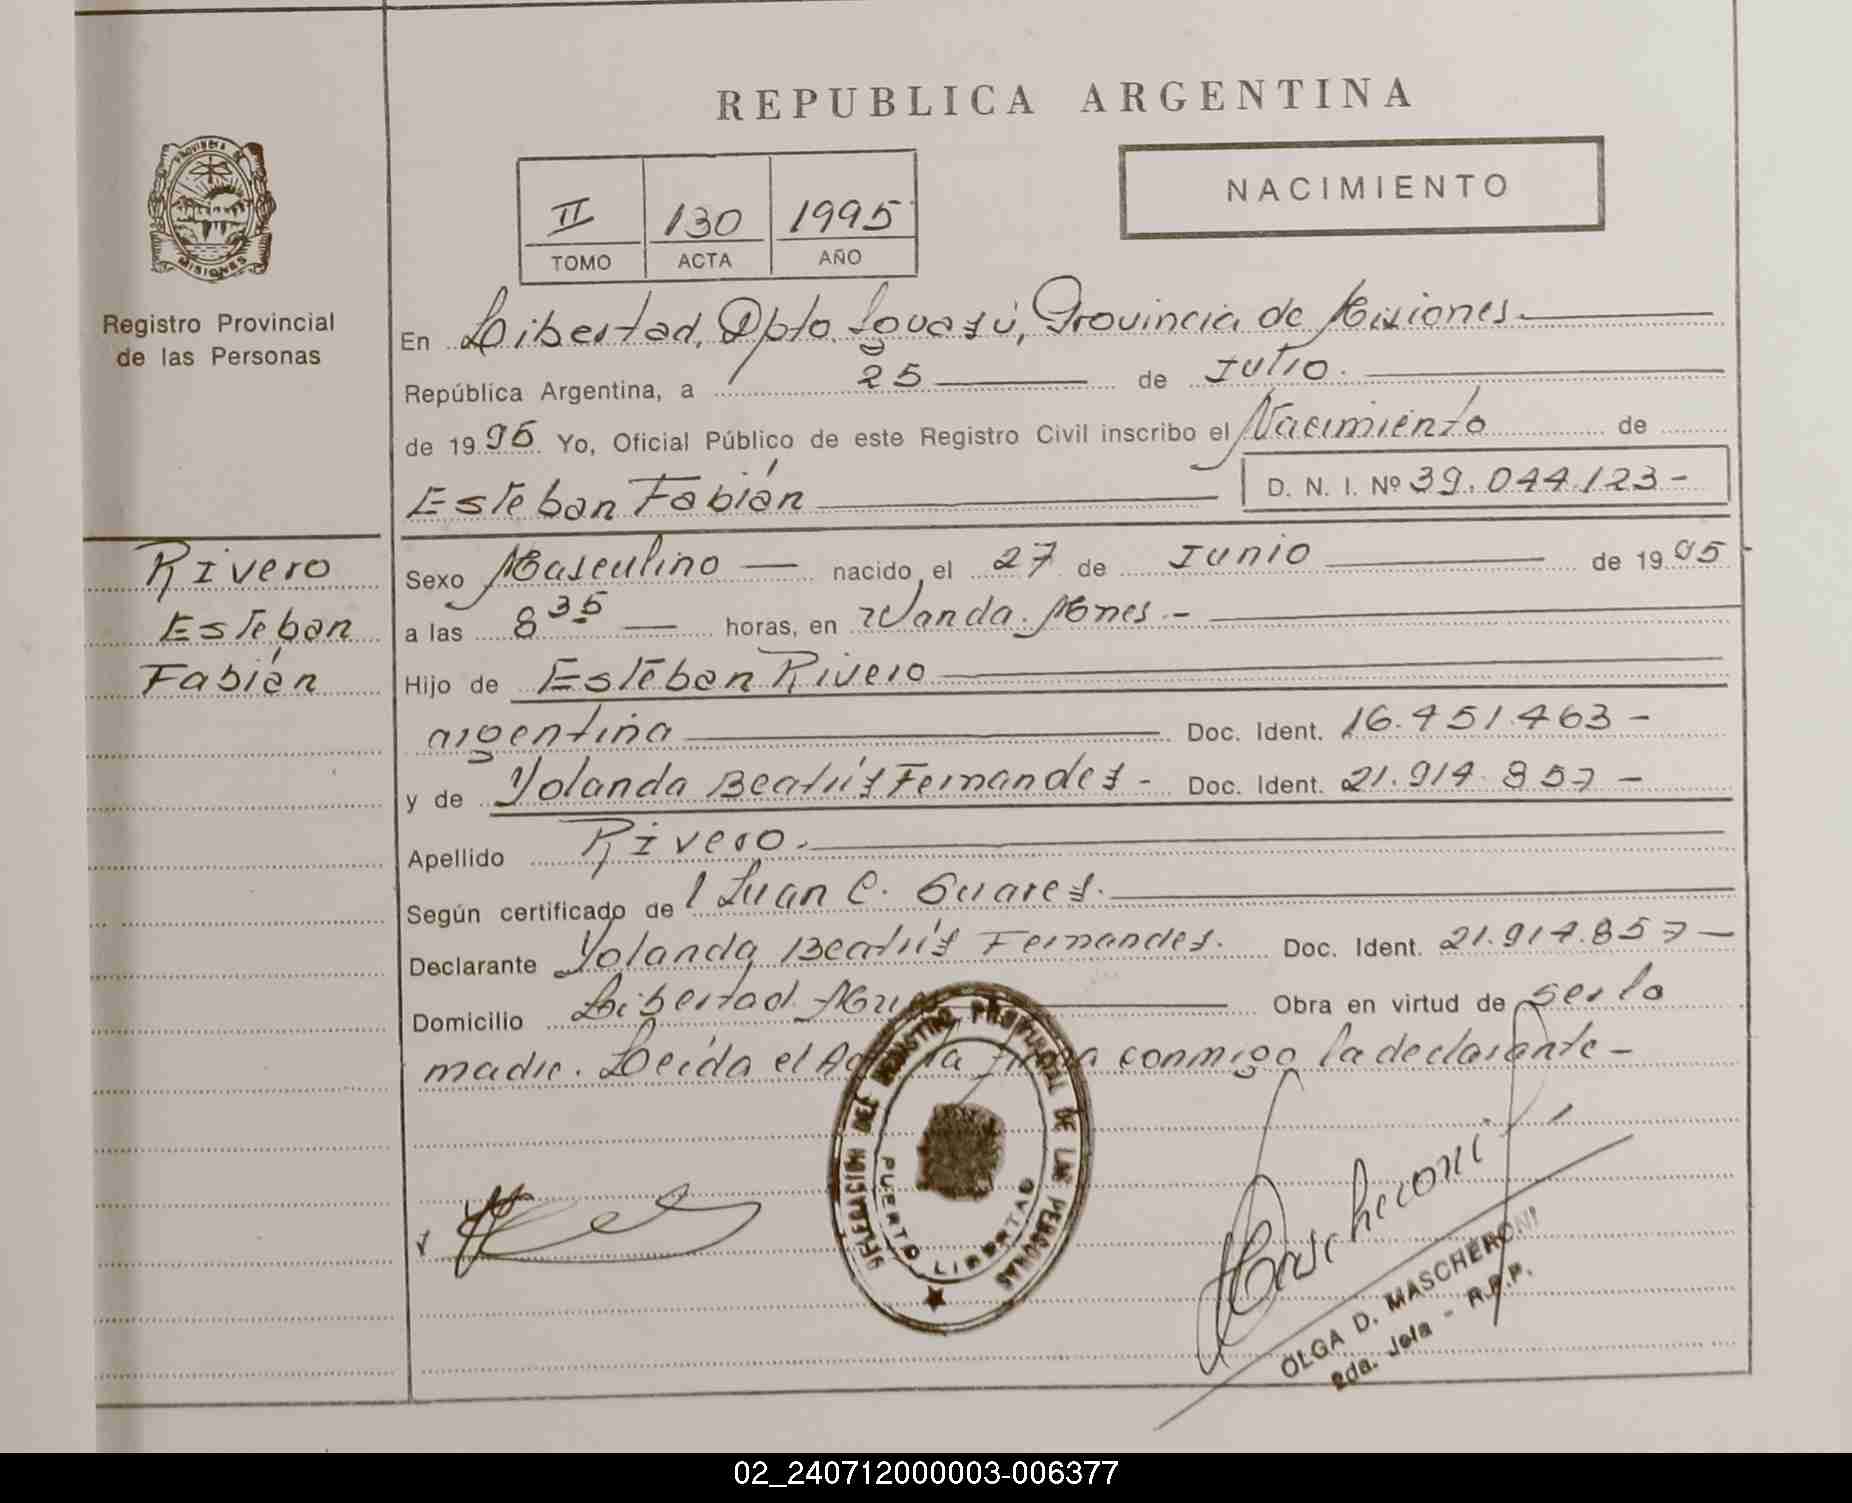 REPUBLICA ARGENTINA
NACIMIENTO
II 130 1995
TOMO ACTA AÑO
PROVINCIA DE
MISIONES
Registro Provincial
de las Personas
En Libertad, Dpto. Iguazú, Provincia de Misiones.
República Argentina, a 25 de Julio.
de 1995 Yo, Oficial Público de este Registro Civil inscribo el Nacimiento de
Esteban Fabián
D. N. I. Nº 39.044.123-
Rivero
Esteban
Fabián
Sexo Masculino — nacido el 27 de Junio de 1995
a las 8 35 — horas, en Wanda. Mnes.-
Hijo de Esteban Rivero
argentina Doc. Ident. 16.451.463-
y de Yolanda Beatriz Fernandez- Doc. Ident. 21.914.857-
Apellido Rivero.
Según certificado de Juan C. Suarez.
Declarante Yolanda Beatriz Fernandez. Doc. Ident. 21.914.857-
Domicilio Libertad Obra en virtud de ser la
madre. Leída el la firma conmigo la declarante-
DELEGACION DEL REGISTRO PROVINCIAL DE LAS PERSONAS
PUERTO LIBERTAD
Mascheroni
OLGA D. MASCHERONI
2da. Jefa - R.P.P.
02_240712000003-006377